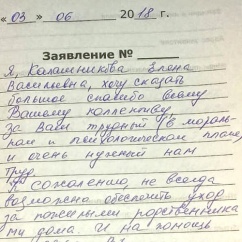 « 03 » 06 2018 г.
Заявление №
Я, Калашникова Елена
Васильевна, хочу сказать
большое спасибо всему
Вашему коллективу
за Ваш трудный (в мораль-
ном и психологическом плане)
и очень нужный нам
труд.
К сожалению, не всегда
возможно обеспечить уход
за пожилыми родственника
ми дома. И на помощь